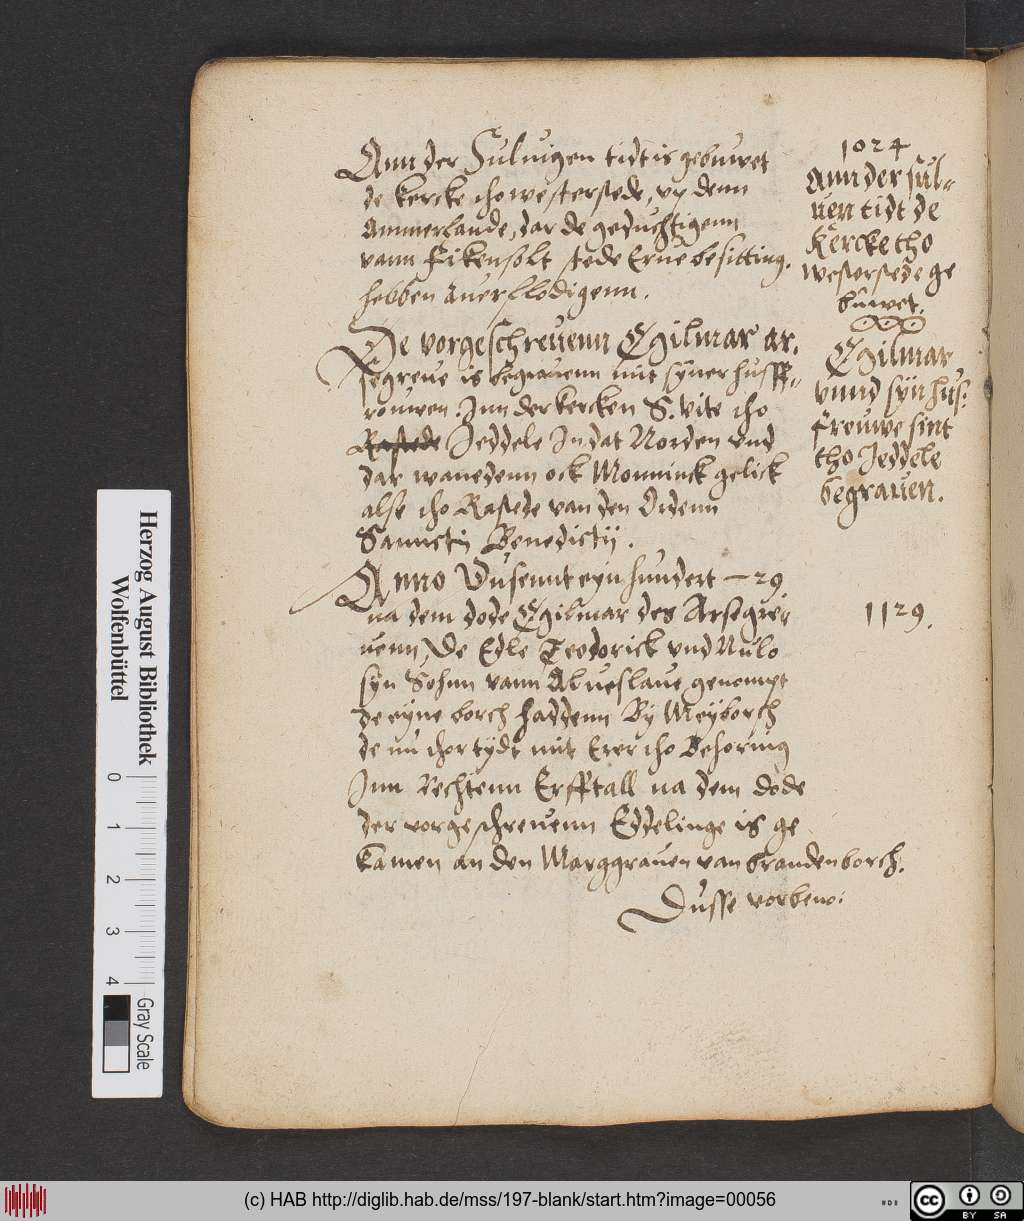 Ann der Suluigen tidt is gebuwet
de kercke tho westerstede, vp denn
Ammerlande, dar de geduchtigenn
vann Fikensolt stede Erue besitting.
hebben auerflodigenn.
De vorgeschreuenn Egilmar ar,
segreue is begrauenn mit syner husff„
rouwen. Inn der kercken S. vite tho
Rastede Jeddele In dat Norden vnd
dar wanedenn ock Monninck gelick
alse tho Rastede van den Ordenn
Sanncty Benedictij.
Anno Dusennt eyn hundert – 29
na dem dode Egilmar des Arsegre,
uenn, De Edle Teodorick vnd Nulo
syn Sohnn vann Alueslaue genompt
de eyne borch haddenn By Meyborch
de nu thor tydt mit Erer tho Behoring
Inn Rechtenn Erfftall na dem dode
der vorgeschreuenn Eddelinge is ge
kamen an den Marggrauen van brandenborch.
Dusse vorben:
1024
Ann der sul„
uen tidt de
Kercke tho
westerstede ge
buwet.
Egilmar
vnnd syn hus,
frouwe sint
tho Jeddele
begrauen.
1129.
Herzog August Bibliothek
Wolfenbüttel
0 1 2 3 4
Gray Scale
(c) HAB http://diglib.hab.de/mss/197-blank/start.htm?image=00056
cc BY SA